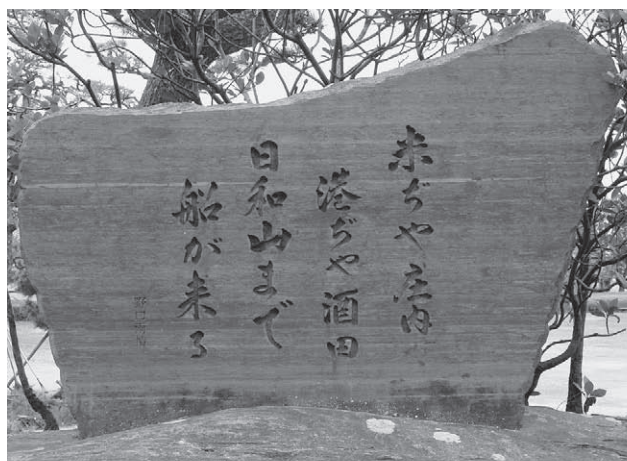 米ぢや庄内
港ぢや酒田
日和山まで
船が来る
野口雨情